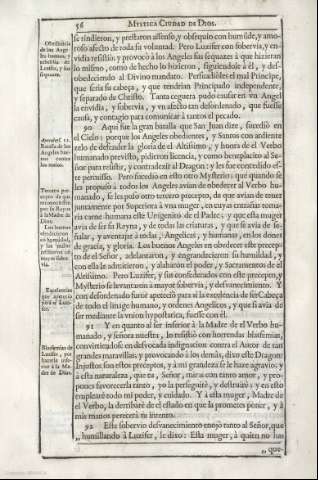 56
MYSTICA CIUDAD DE DIOS.
se rindieron, y prestaron assenso, y obsequio con humilde, y amo-
roso afecto de toda su voluntad. Pero Luzifer con sobervia, y en-
vidia resistiò, y provocò à los Angeles sus sequazes à que hizieran
lo mismo, como de hecho lo hizieron, siguiendole à èl, y des-
obedeciendo al Divino mandato. Persuadiòles el mal Principe,
que seria su cabeça, y que tendrian Principado independente,
y separado de Christo. Tanta ceguera pudo causar en vn Angel
la envidia, y sobervia, y vn afecto tan desordenado, que fuesse
causa, y contagio para comunicar à tantos el pecado.
90 Aqui fue la gran batalla que San Juan dize, sucediò en
el Cielo: porque los Angeles obedientes, y Santos con ardiente
zelo de defender la gloria de el Altissimo, y honra de el Verbo
humanado previsto, pidieron licencia, y como beneplacito al Se-
ñor para resistir, y contradezir al Dragon: y les fue concedido es-
te permisso. Pero sucediò en esto otro Mysterio: que quando se
les propuso à todos los Angeles avian de obedecer al Verbo hu-
manado, se les puso otro tercero precepto, de que avian de tener
juntamente por Superiora à vna muger, en cuyas entrañas toma-
ria carne humana este Unigenito de el Padre; y que esta muger
avia de ser su Reyna, y de todas las criaturas, y que se avia de se-
ñalar, y aventajar à todas, Angelicas, y humanas, en los dones
de gracia, y gloria. Los buenos Angeles en obedecer este precep-
to de el Señor, adelantaron, y engrandecieron su humildad, y
con ella le admitieron, y alabaron el poder, y Sacramentos de el
Altissimo. Pero Luzifer, y sus confederados con este precepto, y
Mysterio se levantaron à mayor sobervia, y desvanecimiento. Y
con desordenado furor apeteciò para sì la excelencia de ser Cabeça
de todo el linage humano, y ordenes Angelicos, y que si avia de
ser mediante la vnion hypostatica, fuesse con èl.
91 Y en quanto al ser inferior à la Madre de el Verbo hu-
manado, y señora nuestra, lo resistiò con horrendas blasfemias,
convirtiendose en desvocada indignacion contra el Autor de tan
grandes maravillas; y provocando à los demàs, dixo este Dragon:
Injustos son estos preceptos, y à mi grandeza se le haze agravio; y
à esta naturaleza, que tu, Señor, miras con tanto amor, y pro-
pones favorecerla tanto, yo la perseguirè, y destruirè; y en esto
emplearè todo mi poder, y cuidado. Y à esta muger, Madre de
el Verbo, la derribarè de el estado en que la prometes poner, y à
mis manos perecerà tu intento.
92 Este sobervio desvanecimiento enojò tanto al Señor, que
„ humillando à Luzifer, le dixo: Esta muger, à quien no has
„ que-
Obediencia
de los Ange-
les buenos, y
rebeldia de
Luzifer, y sus
sequazes.
Apocalyp. 12.
Batalla de los
Angeles bue-
nos contra
los malos.
Tercero pre-
cepto de que
reconociessen
por su Reyna
à la Madre de
Dios.
Los buenos
obedecieron
con humildad,
y los malos
resistieron con
mayor sober-
via.
Excelencias
que apeteciò
para sì Luzi-
fer.
Blasfemias de
Luzifer, por
hazerle infe-
rior à la Ma-
dre de Dios.